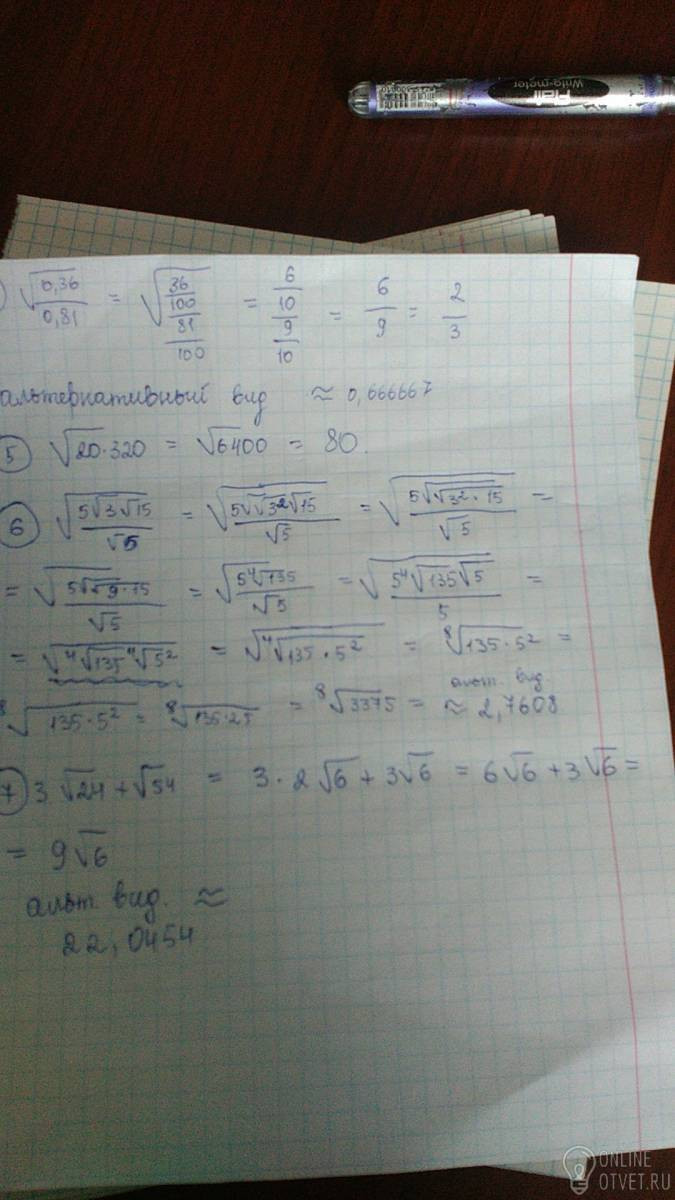 Pilot
Write-meter
) √(0,36/0,81) = √((36/100)/(81/100)) = (6/10)/(9/10) = 6/9 = 2/3
альтернативный вид ≈ 0,666667
5 √20·320 = √6400 = 80.
6 √(5√3√15/√5) = √(5√√3²√15/√5) = √(5√√3²·15/√5) =
= √(5√√9·15/√5) = √(5⁴√135/√5) = √(5⁴√135√5/5) =
= √(⁴√135⁴√5²) = √(⁴√135·5²) = ⁸√135·5² =
⁸√135·5² = ⁸√135·25 = ⁸√3375 = альт. вид. ≈ 2,7608
7 3√24+√54 = 3·2√6+3√6 = 6√6+3√6 =
= 9√6
альт вид. ≈
22,0454
ONLINE
OTVET.RU